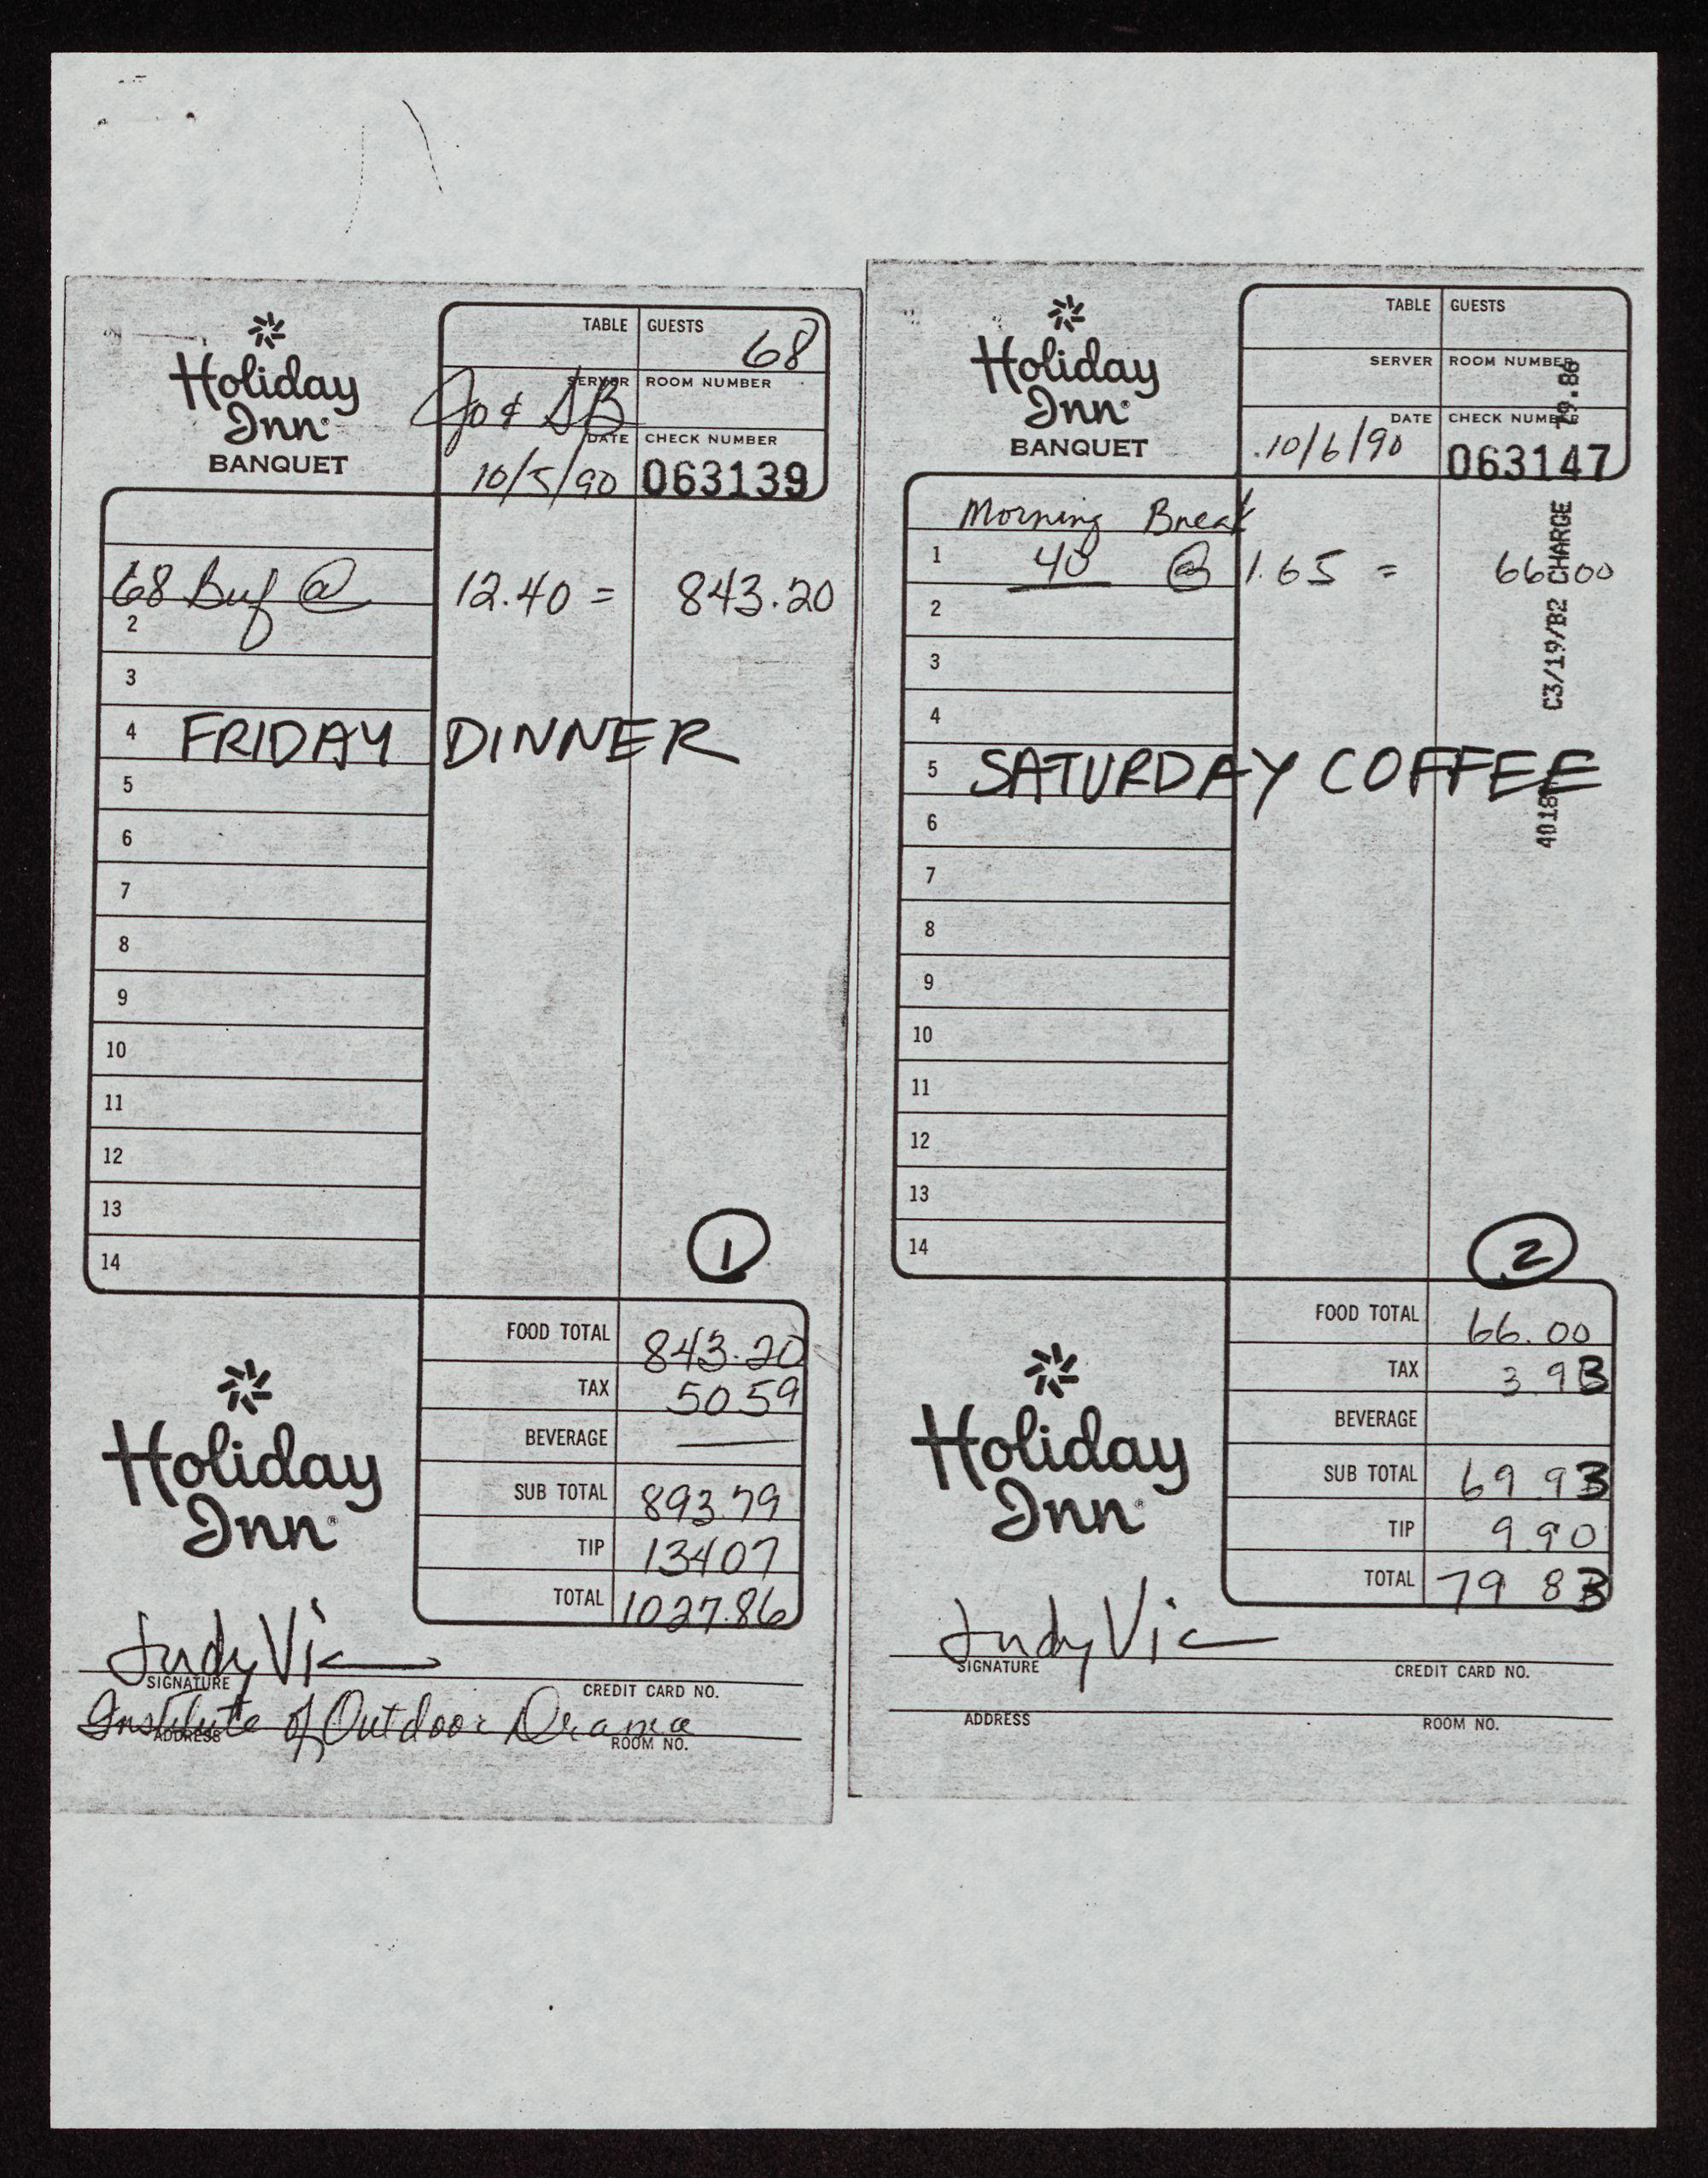 Holiday Inn
BANQUET
TABLE GUESTS
68
SERVER ROOM NUMBER
Jo & DB
DATE CHECK NUMBER
10/5/90 063139
68 Buf @ 12.40 = 843.20
2
3
4 FRIDAY DINNER
5
6
7
8
9
10
11
12
13
14
1
FOOD TOTAL 843.20
TAX 50 59
BEVERAGE —
SUB TOTAL 893.79
TIP 134 07
TOTAL 1027.86
Holiday Inn®
Judy Vic
SIGNATURE CREDIT CARD NO.
Institute of Outdoor Drama
ADDRESS ROOM NO.
Holiday Inn
BANQUET
TABLE GUESTS
SERVER ROOM NUMBER
DATE CHECK NUMBER
10/6/90 063147
Morning Break
1 40 @ 1.65 = 66.00
2
3
4
5 SATURDAY COFFEE
6
7
8
9
10
11
12
13
14
2
FOOD TOTAL 66.00
TAX 3.93
BEVERAGE
SUB TOTAL 69 93
TIP 9.90
TOTAL 79 83
Holiday Inn®
Judy Vic
SIGNATURE CREDIT CARD NO.
ADDRESS ROOM NO.
C3/19/B2 CHARGE 79.86